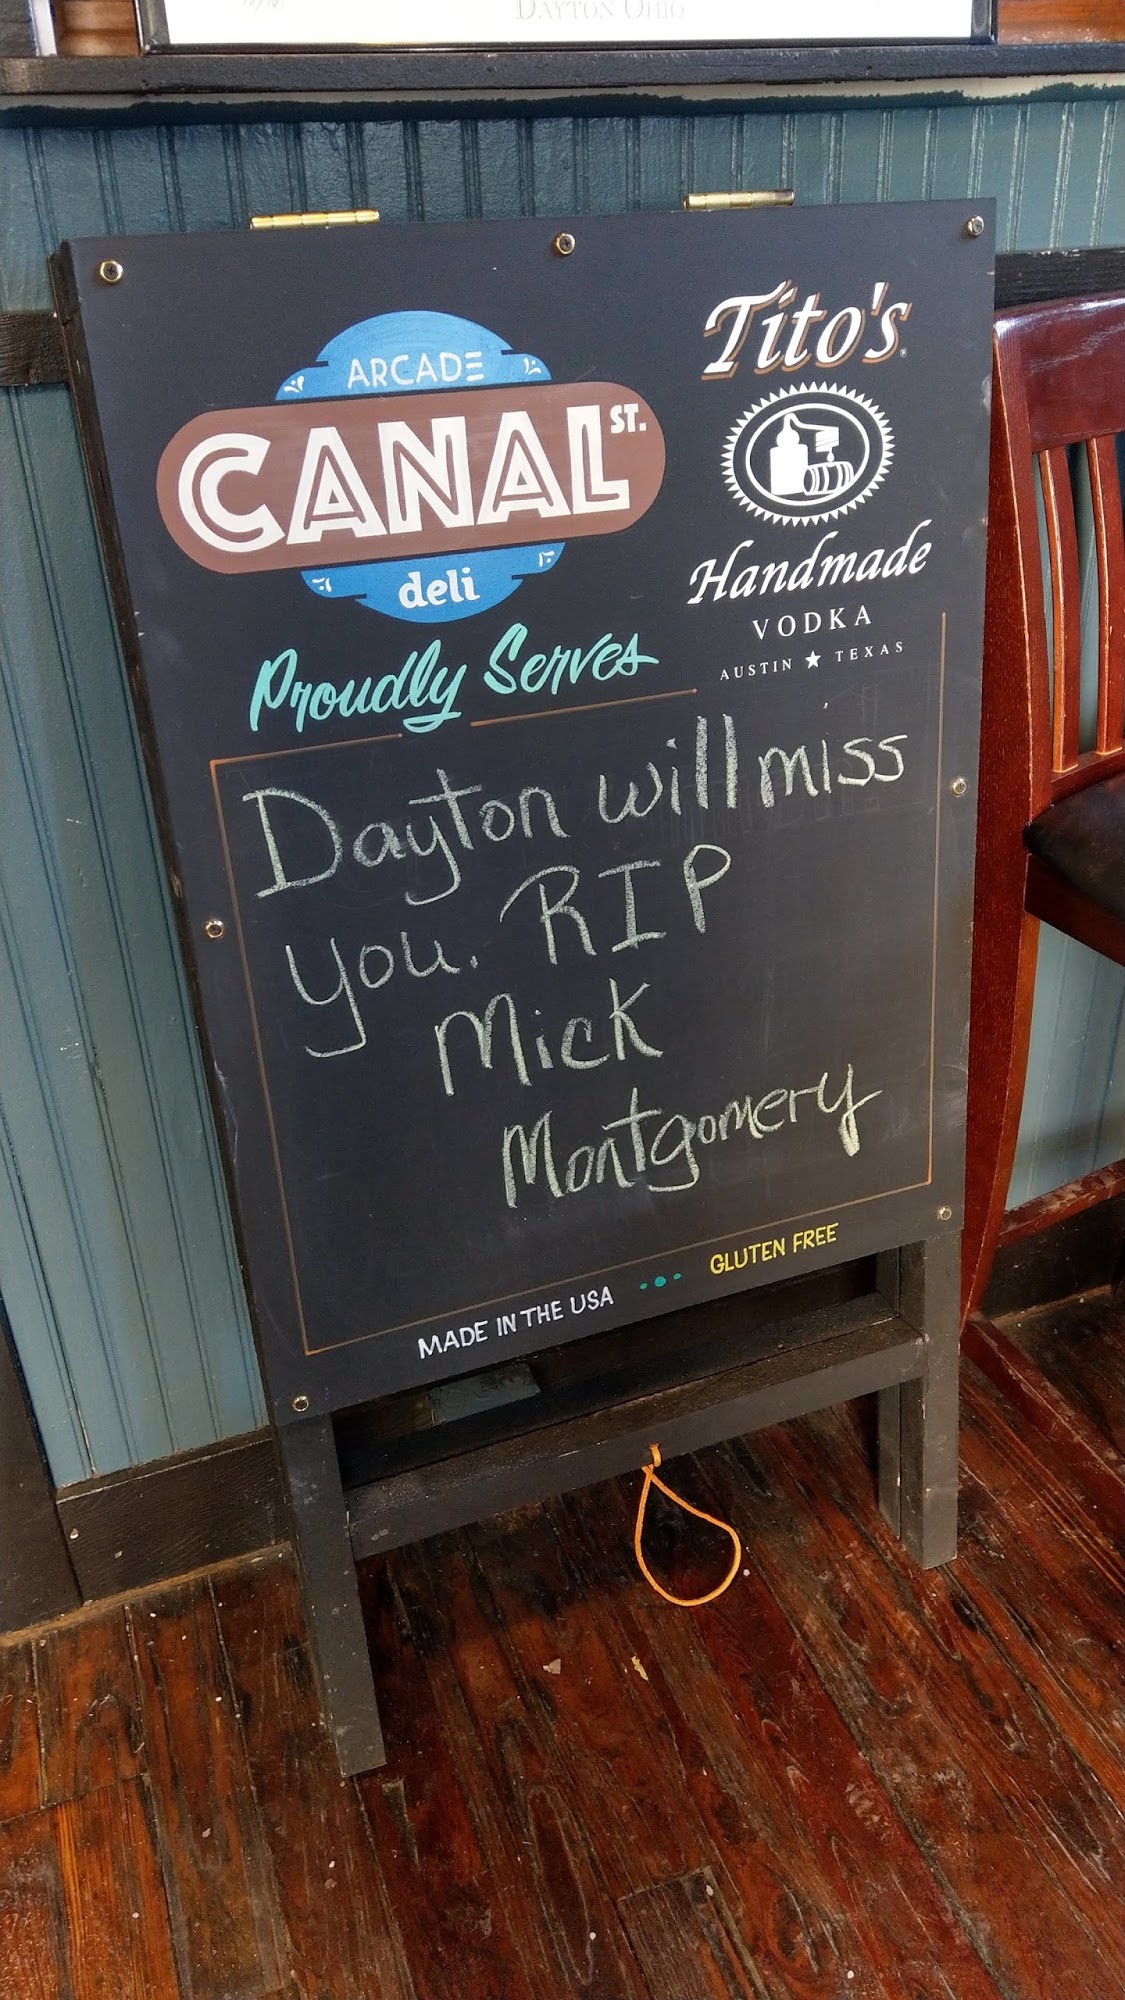 DAYTON OHIO
ARCADE
CANAL ST.
deli
Proudly Serves
Tito's
Handmade
VODKA
AUSTIN ★ TEXAS
Dayton will miss
you. RIP
Mick
Montgomery
MADE IN THE USA
GLUTEN FREE